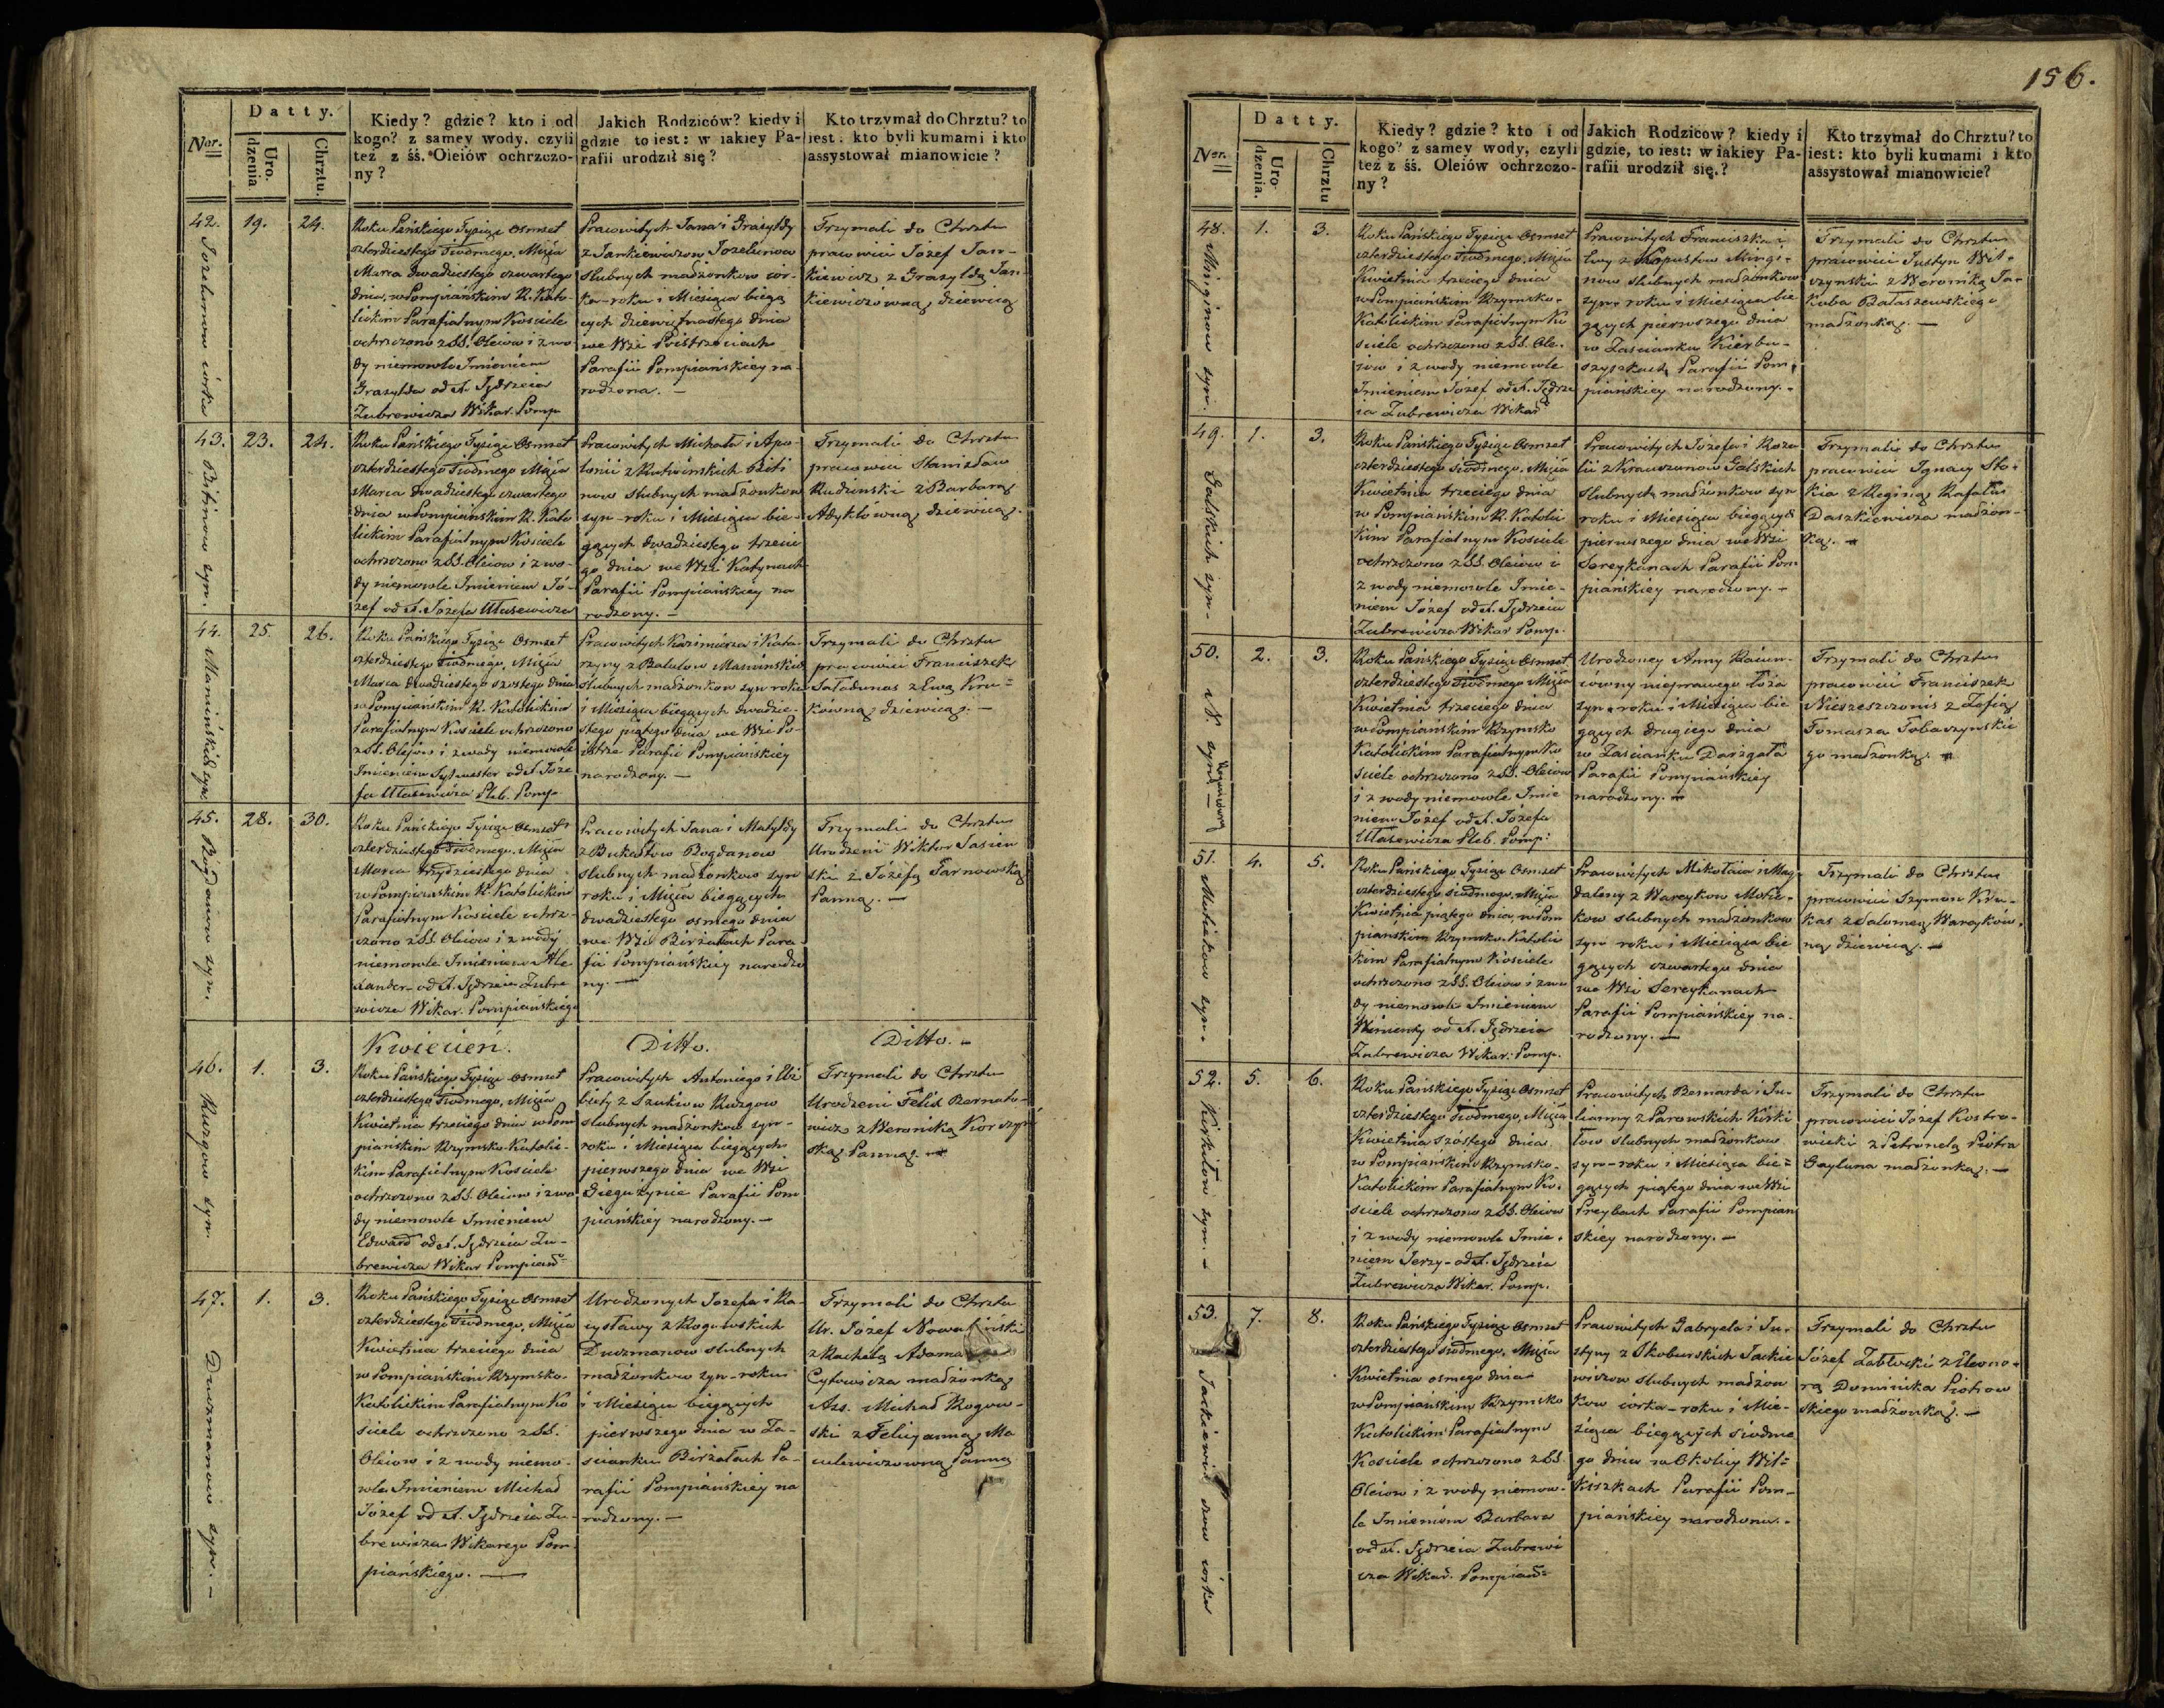 Datty.
Nor.
Uro.
dzenia
Chrztu.
Kiedy? gdzie? kto i od
kogo? z samey wody, czyli
też z śś. Oleiów ochrzczo-
ny?
Jakich Rodziców? kiedy i
gdzie to iest: w iakiey Pa-
rafii urodził się?
Kto trzymał do Chrztu? to
iest: kto byli kumami i kto
assystował mianowicie?
42. 19. 24.
Jozelunow córka
Roku Pańskiego Tysiąc Osmset
czterdziestego siodmego, Mięsia
Marca dwadziestego czwartego
dnia, w Pompiańskim R. Kato-
lickim Parafialnym Kosciele
ochrzczono z SS. Oleiow i z wo
dy niemowle Imieniem
Grasylda od X. Jędrzeia
Zubrewicza Wikar. Pomp
Pracowitych Jana i Grasyldy
z Jankiewiczow Jozelunow
slubnych małżonkow cor-
ka - roku i Miesiąca bieżą
cych dziewiętnastego dnia
we Wsi Poistrzeciach
Parafii Pompiańskiey na-
rodzona. —
Trzymali do Chrztu
pracowici Józef Jan-
kiewicz z Grasyldą Jan-
kiewiczówną dziewicą
43. 23. 24.
Bitinow syn.
Roku Pańskiego Tysiąc Osmset
czterdziestego siodmego Mięsia
Marca dwadziestego czwartego
dnia w Pompiańskim R. Kato
lickim Parafialnym Kosciele
ochrzczono z SS. Oleiow i z wo-
dy niemowle Imieniem Jó-
zef od X. Józefa Ułasewicza
Pracowitych Michała i Apo-
lonii z Rutwinskich Biti
now slubnych małżonkow
syn - roku i Miesiąca bie-
gących dwadziestego trzeci
go dnia we Wsi Katynach
Parafii Pompiańskiey na
rodzony. —
Trzymali do Chrztu
pracowici Stanisław
Rudzinski z Barbarą
Adyklówną dziewicą.
44. 25. 26.
Mamińskich syn
Roku Pańskiego Tysiąc Osmset
czterdziestego siodmego, Mięsia
Marca dwadziestego szostego dnia
w Pompiańskim R. Katolickim
Parafialnym Kosciele ochrzczono
z SS. Oleiow i z wody niemowle
Imieniem Sylwester od X. Józe
fa Ułasewicza Pleb. Pomp.
Pracowitych Kazimierza i Kata-
rzyny z Balulow Maminskich
slubnych małżonkow syn roku
i Miesiąca biegących dwadzie-
stego piątego dnia we Wsi Po-
istrze Parafii Pompiańskiey
narodzony. —
Trzymali do Chrztu
pracowici Franciszek
Sataдunas z Ewą Kru-
kówną dziewicą. —
45. 28. 30.
Bogdanow syn.
Roku Pańskiego Tysiąc Osmset
czterdziestego siodmego. Mięsia
Marca trzydziestego dnia
w Pompiańskim R. Katolickim
Parafialnym Kosciele ochrz-
czono z SS. Oleiow i z wody
niemowle Imieniem Ale
xander - od X. Jędrzeia Zubre
wicza Wikar. Pompiańskiego
Pracowitych Jana i Matyldy
z Bukastow Bogdanow
slubnych małżonkow syn
roku i Mięsia biegących
dwadziestego osmego dnia
we Wsi Birżałach Para-
fii Pompiańskiey narodzo
ny. —
Trzymali do Chrztu
Urodzeni Wiktor Jasien
ski z Józefą Tarnowską
Panną. —
Kwiecień. Ditto. Ditto. -
46. 1. 3.
Kurgow syn.
Roku Pańskiego Tysiąc Osmset
czterdziestego siodmego, Mięsia
Kwietnia trzeciego dnia w Pom
piańskim Rzymsko-Katolic-
kim Parafialnym Kosciele
ochrzczono z SS. Oleiow i z wo
dy niemowle Imieniem
Edward od X. Jędrzeia Zu-
brewicza Wikar Pompiań
Pracowitych Antoniego i Elż
biety z Szukiow Kurgow
slubnych małżonkow syn -
roku i Miesiąca biegących
pierwszego dnia we Wsi
Giegużynie Parafii Pom
piańskiey narodzony. —
Trzymali do Chrztu
Urodzeni Felix Bernato-
wicz z Weroniką Korczyń
ską Panną. —
47. 1. 3.
Duczmanow syn. -
Roku Pańskiego Tysiąc Osmset
czterdziestego siodmego, Mięsia
Kwietnia trzeciego dnia
w Pompiańskim Rzymsko-
Katolickim Parafialnym Ko
sciele ochrzczono z SS.
Oleiow i z wody niemo-
wle Imieniem Michał
Józef od X. Jędrzeia Zu-
brewicza Wikarego Pom
piańskiego. —
Urodzonych Jozefa i Ra-
cysławy z Rogowskich
Duczmanow slubnych
małżonkow syn - roku
i Miesiąca biegących
pierwszego dnia w Za-
scianku Birżałach Pa-
rafii Pompiańskiey na
rodzony. —
Trzymali do Chrztu
Ur. Józef Nowaliński
z Rachelą Adama
Cytowicza małżonką
Ass. Michał Rogow-
ski z Felicyanną Ma
culewiczowną Panną
156.
Datty.
Nor.
Uro-
dzenia.
Chrztu
Kiedy? gdzie? kto i od
kogo? z samey wody, czyli
też z śś. Oleiów ochrzczo-
ny?
Jakich Rodzicow? kiedy i
gdzie, to iest: w iakiey Pa-
rafii urodził się.?
Kto trzymał do Chrztu? to
iest: kto byli kumami i kto
assystował mianowicie?
48. 1. 3.
Minginow syn.
Roku Pańskiego Tysiąc Osmset
czterdziestego siodmego, Mięsia
Kwietnia trzeciego dnia
w Pompiańskim Rzymsko-
Katolickim Parafialnym Ko
sciele ochrzczono z SS. Ole-
iow i z wody niemowle
Imieniem Józef od X. Jędrze
ia Zubrewicza Wikar
Pracowitych Franciszka i
Ewy z Kapustow Mingi-
now slubnych małżonkow
syn - roku i Miesiąca bie
gących pierwszego dnia
w Zascianku Kierbu-
szyszkach Parafii Pom-
piańskiey narodzony. -
Trzymali do Chrztu
pracowici Justyn Wil-
czynski z Weroniką Ja-
kuba Bałaszewskiego
małżonką. —
49. 1. 3.
Galskich syn -
Roku Pańskiego Tysiąc Osmset
czterdziestego siodmego. Mięsia
Kwietnia trzeciego dnia
w Pompiańskim R. Katolic
kim Parafialnym Kosciele
ochrzczono z SS. Oleiow i
z wody niemowle Imie-
niem Józef od X. Jędrzeia
Zubrewicza Wikar Pomp.
Pracowitych Józefa i Roza
lii z Krauczunow Galskich
slubnych małżonkow syn
roku i Miesiąca biegących
pierwszego dnia we Wsi
Sereykanach Parafii Pom
piańskiey narodzony. -
Trzymali do Chrztu
pracowici Ignacy Sto-
kia z Reginą Rafała
Daszkiewicza małżon-
ką. —
50. 2. 3.
N. syn —
Roku Pańskiego Tysiąc Osmset
czterdziestego siodmego Mięsia
Kwietnia trzeciego dnia
w Pompiańskim Rzymsko
Katolickim Parafialnym Ko
sciele ochrzczono z SS. Oleiow
i z wody niemowle Imie
niem Józef od X. Józefa
Ułasewicza Pleb. Pomp:
Urodzoney Anny Raiun-
cówny nieprawego łoża
syn - roku i Miesiąca bie
gących drugiego dnia
w Zascianku Darżgała
Parafii Pompiańskiey
narodzony. —
Trzymali do Chrztu
pracowici Franciszek
Nieszeszczonis z Zofią
Tomasza Tobaczynskie
go małżonką. —
51. 4. 5.
Motiekow syn -
Roku Pańskiego Tysiąc Osmset
czterdziestego siodmego, Mięsia
Kwietnia piątego dnia w Pom
pianskim Rzymsko-Katolic
kim Parafialnym Kosciele
ochrzczono z SS. Oleiow i z wo
dy niemowle Imieniem
Wincenty od X. Jędrzeia
Zubrewicza Wikar: Pomp.
Pracowitych Mikołaia i Mag
daleny z Wareykow Motie-
kow slubnych małżonkow
syn roku i Miesiąca bie
gących czwartego dnia
we Wsi Sereykanach
Parafii Pompiańskiey na-
rodzony. —
Trzymali do Chrztu
pracowici Szymon Kru-
kas z Salomeą Wareyków-
ną dziewicą. —
52. 5. 6.
Kirkiłow syn. -
Roku Pańskiego Tysiąc Osmset
czterdziestego siodmego, Mięsia
Kwietnia szóstego dnia
w Pompiańskim Rzymsko-
Katolickim Parafialnym Ko-
sciele ochrzczono z SS. Oleiow
i z wody niemowle Imie-
niem Jerzy - od X. Jędrzeia
Zubrewicza Wikar. Pomp.
Pracowitych Bernarda i Ju-
lianny z Parowskich Kirki
łow slubnych małżonkow
syn - roku i Miesiąca bie-
gących piątego dnia we Wsi
Preybach Parafii Pompian
skiey narodzony. —
Trzymali do Chrztu
pracowici Józef Kostro-
wicki z Petronelą Piotra
Gayluna małżonką. —
53. 7. 8.
Jackiewiczow córka
Roku Pańskiego Tysiąc Osmset
czterdziestego siodmego, Mięsia
Kwietnia osmego dnia
w Pompiańskim Rzymsko
Katolickim Parafialnym
Kosciele ochrzczono z SS.
Oleiow i z wody niemow-
le Imieniem Barbara
od X. Jędrzeia Zubrewi
cza Wikar. Pompiań-
Pracowitych Gabryela i Ju-
styny z Skoburskich Jackie
wiczow slubnych małżon
kow córka - roku i Mie-
siąca biegących siodme
go dnia w Okolicy Wil-
kiszkach Parafii Pom-
piańskiey narodzona. -
Trzymali do Chrztu
Józef Zabłocki z Eleono-
rą Dominika Piotrow
skiego małżonką. —